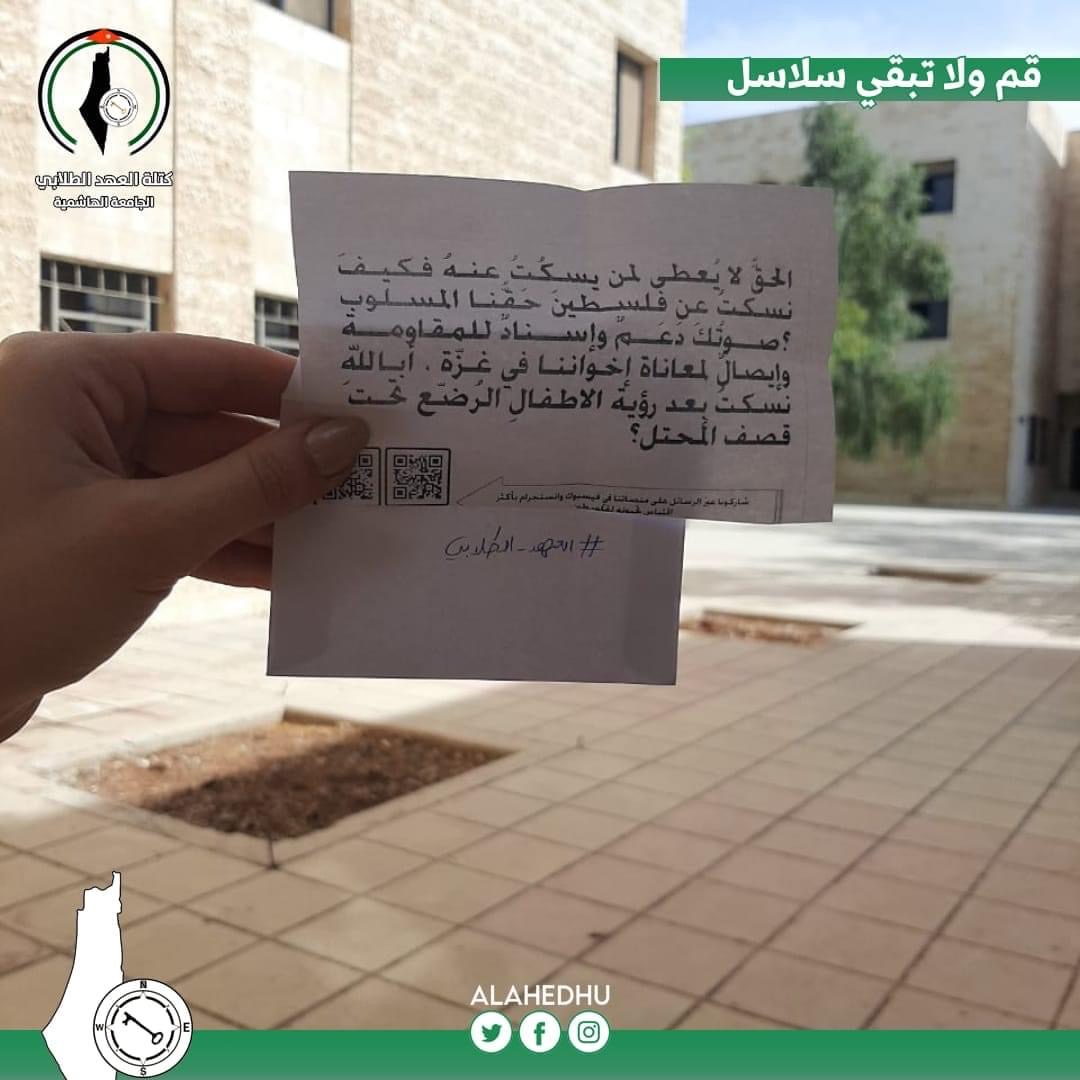 قم ولا تبقي سلاسل
كتلة العهد الطلابي
الجامعة الهاشمية
الحقَّ لا يُعطى لمن يسكُتُ عنهُ فكيفَ
نسكتُ عن فلسطينَ حَقَّنا المسلوب
؟صوتُكَ دَعَمٌ وإسنادٌ للمقاومة
وإيصالٌ لمعاناة إخواننا في غزّة . أبالله
نسكتُ بعد رؤية الاطفالِ الرُضّع تحتَ
قصف المُحتل؟
شاركونا عبر الرسائل على منصاتنا في فيسبوك وانستجرام بأكثر
اقتباس
#العهد_الطلابي
N
W
E
S
ALAHEDHU